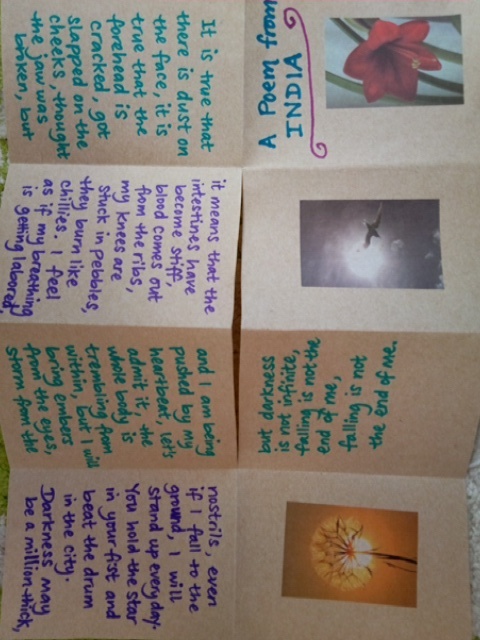 A Poem from
INDIA
It is true that
there is dust on
the face, it is
true that the
forehead is
cracked, got
slapped on the
cheeks, thought
the jaw was
broken, but
it means that the
intestines have
become stiff,
blood comes out
from the ribs,
my knees are
stuck in pebbles,
they burn like
chillies. I feel
as if my breathing
is getting labored,
and I am being
pushed by my
heartbeat, let's
admit it, the
whole body is
trembling from
within, but I will
bring embers
from the eyes,
storm from the
nostrils, even
if I fall to the
ground, I will
stand up everyday.
You hold the star
in your fist and
beat the drum
in the city.
Darkness may
be a million-thick,
but darkness
is not infinite,
falling is not the
end of me,
falling is not
the end of me.